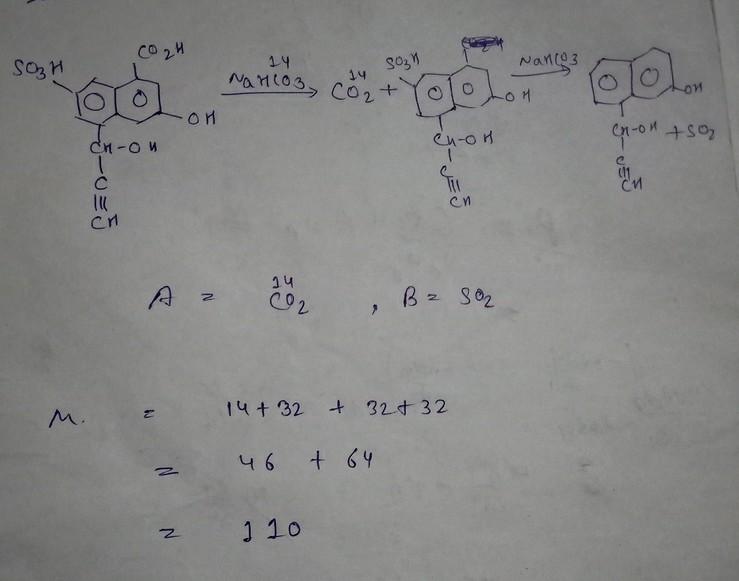 CO2H
SO3H
14
NaHCO3
OH
CH-OH
C
|||
CH
14
CO2 +
SO3H
OH
CH-OH
C
|||
CH
NaHCO3
OH
CH-OH + SO2
C
|||
CH
A = 14CO2 , B = SO2
M. = 14+32 + 32+32
= 46 + 64
= 110